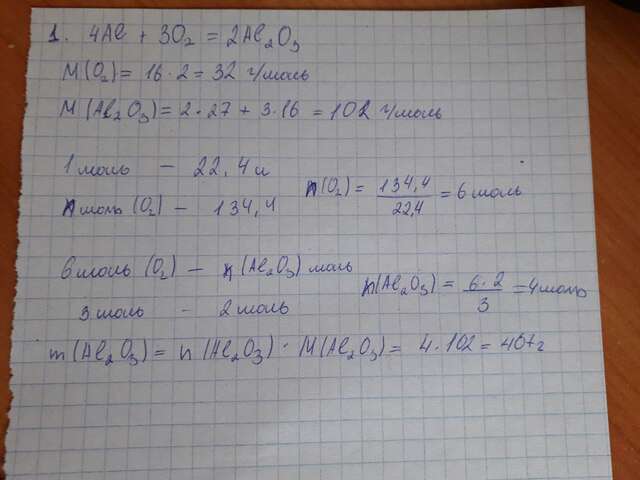 1. 4Al + 3O₂ = 2Al₂O₃
M(O₂) = 16 · 2 = 32 г/моль
M(Al₂O₃) = 2 · 27 + 3 · 16 = 102 г/моль
1 моль – 22,4 л
n моль (O₂) – 134,4
n(O₂) = 134,4/22,4 = 6 моль
6 моль (O₂) – n(Al₂O₃) моль
3 моль – 2 моль
n(Al₂O₃) = 6·2/3 = 4 моль
m(Al₂O₃) = n(Al₂O₃) · M(Al₂O₃) = 4 · 102 = 407 г